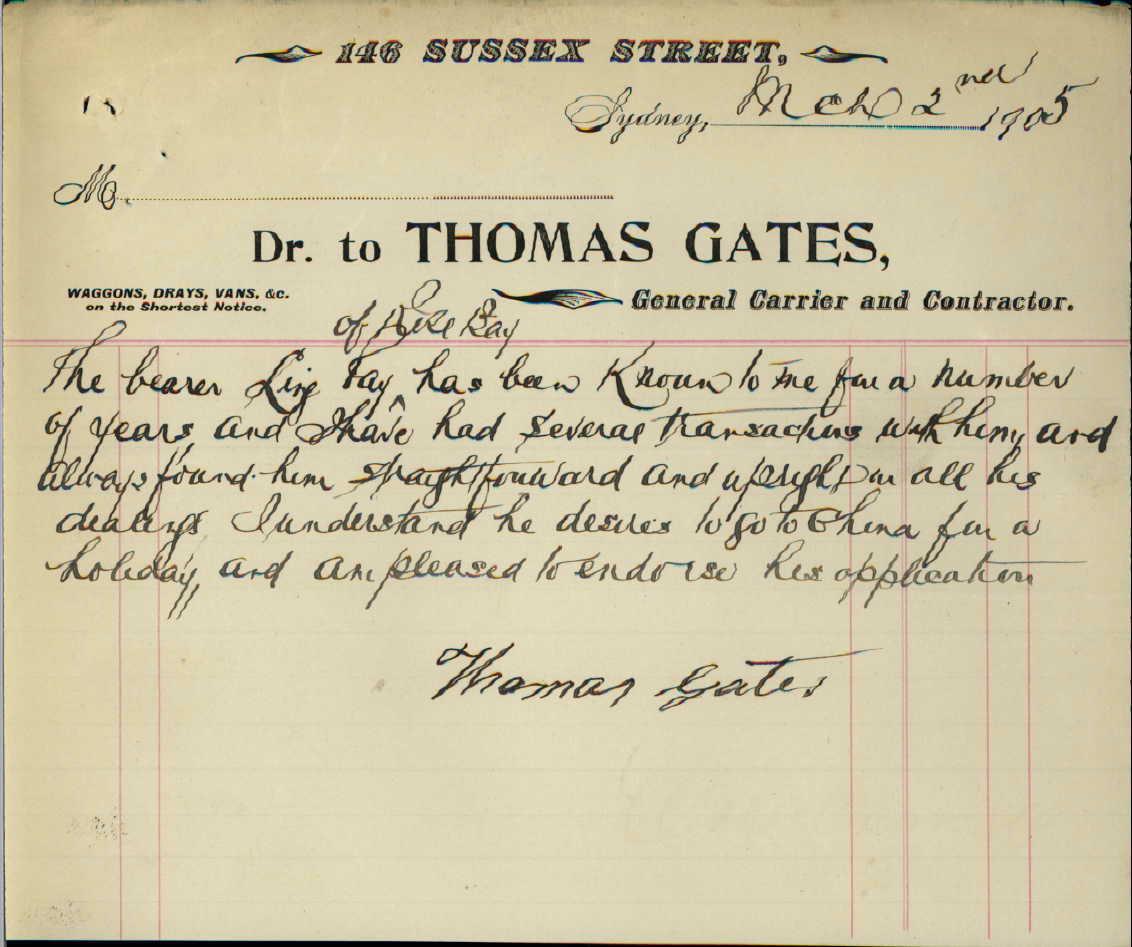 146 SUSSEX STREET,
Sydney, Mch 2nd 1905
M
Dr. to THOMAS GATES,
WAGGONS, DRAYS, VANS, &c.
on the Shortest Notice.
General Carrier and Contractor.
of Rose Bay
The bearer Ling Fay has been Known to me for a number
of years, and I have had several transactions with him, and
always found him straightforward and upright in all his
dealings I understand he desires to go to China for a
holiday, and am pleased to endorse his application
Thomas Gates